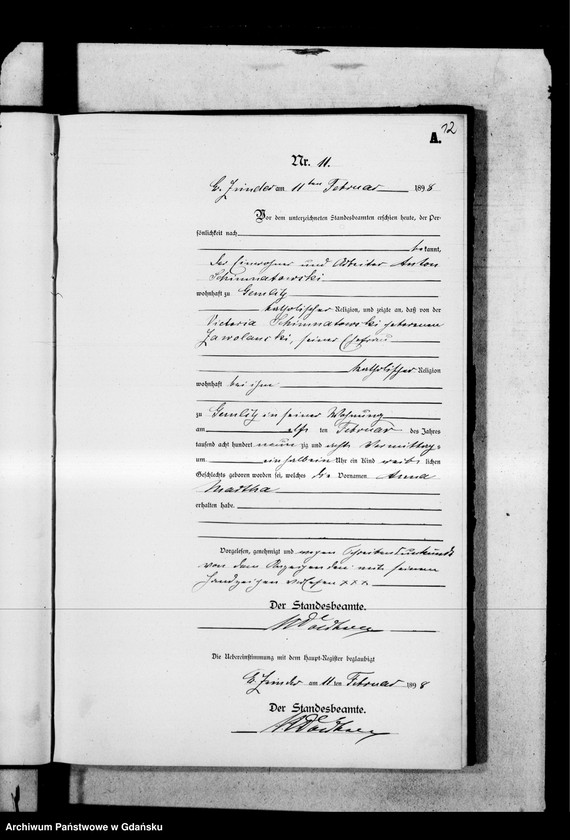 12
A.
Nr. 11.
G. Zünder am 11ten Februar 1898
Vor dem unterzeichneten Standesbeamten erschien heute, der Per-
sönlichkeit nach
bekannt,
der Einwohner und Arbeiter Anton
Schimnatowski
wohnhaft zu Gemlitz
katholischer Religion, und zeigte an, daß von der
Victoria Schimnatowski geborenen
Zawolanski, seiner Ehefrau
katholischer Religion
wohnhaft bei ihm
zu Gemlitz in seiner Wohnung
am elften Februar des Jahres
tausend acht hundert neunzig und acht Vormittags
um ein halb ein Uhr ein Kind weiblichen
Geschlechts geboren worden sei, welches die Vornamen Anna
Martha
erhalten habe.
Vorgelesen, genehmigt und wegen Schreibensunkunde
von dem Anzeigenden mit seinem
Handzeichen versehen xxx
Der Standesbeamte.
Die Uebereinstimmung mit dem Haupt-Register beglaubigt
G. Zünder am 11ten Februar 1898
Der Standesbeamte.
Archiwum Państwowe w Gdańsku